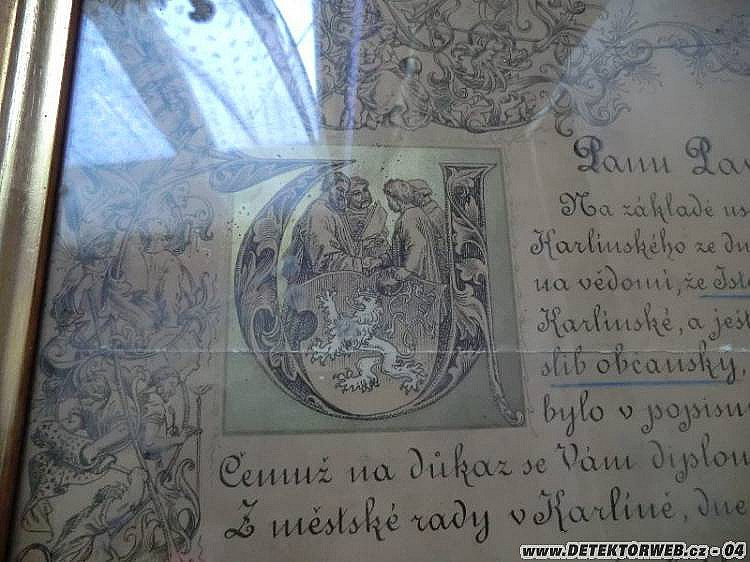 Panu Pav
Na základě us
Karlínského ze dn
na vědomí, že Jste
Karlínské, a ješt
slib občanský,
bylo v popisu
Čemuž na důkaz se Vám diplom
Z městské rady v Karlíně, dne
www.DETEKTORWEB.cz - 04